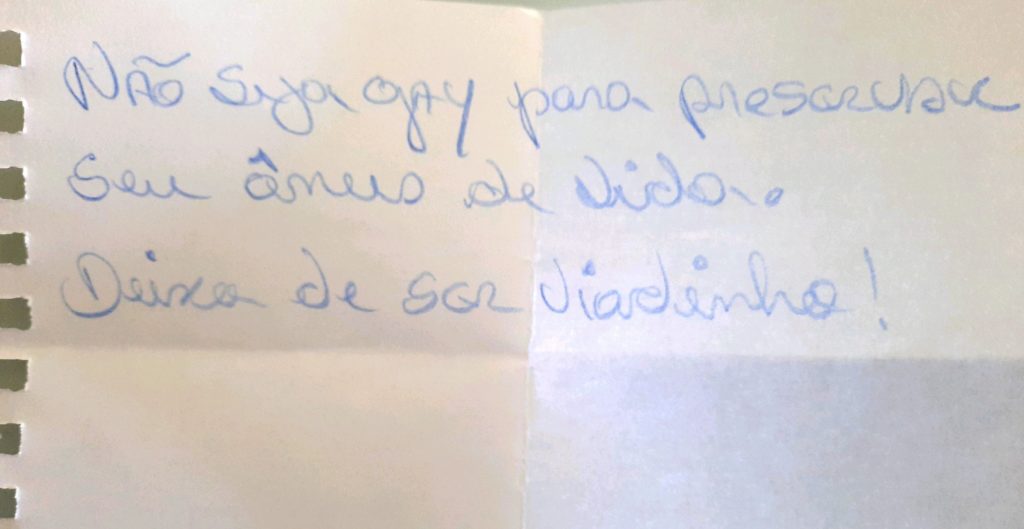 Não seja gay para preservar
seu ânus de vida.
Deixa de ser viadinho!